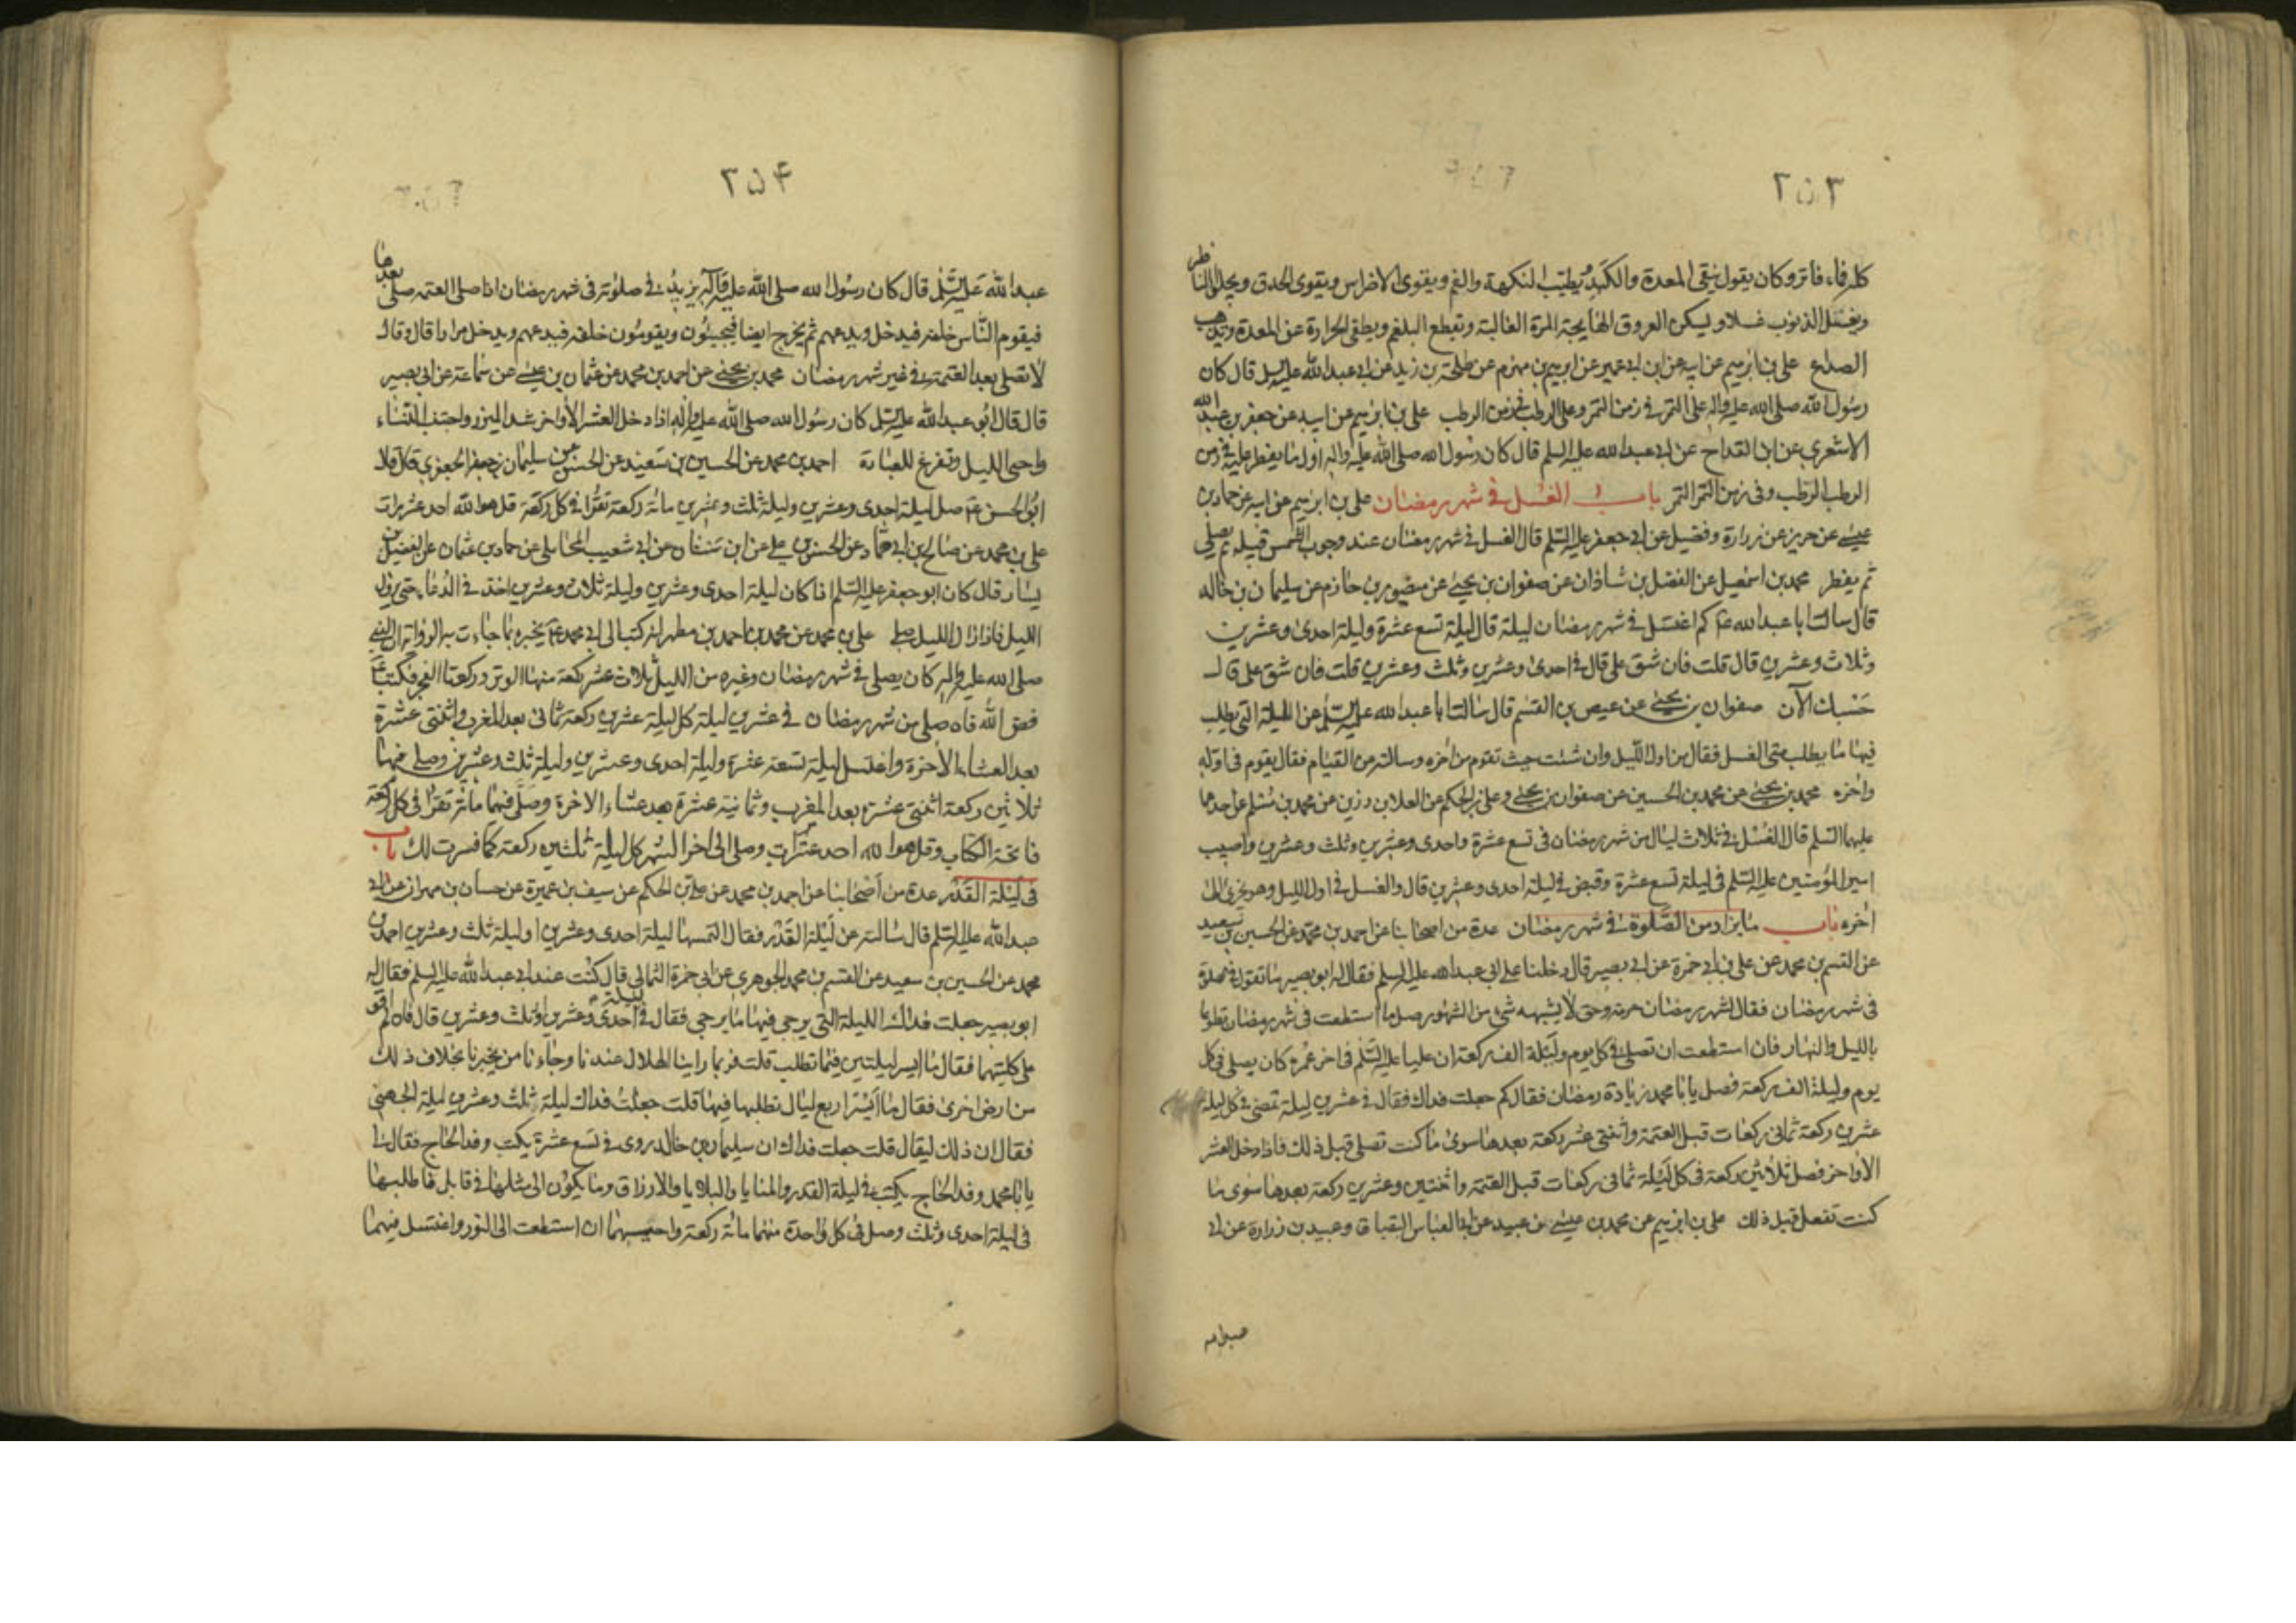 ٢٥٣
كله فماء فاتر وكان يقول ينقى المعدة والكبد ويطيب النكهة والفم ويقوى الاضراس ويقوى الحدق ويجلو الناظر
ويغسل الذنوب غسلا ويسكن العروق الهايجة المرة الغالبة ويقطع البلغم ويطفى الحرارة عن المعدة ويذهب
الصداع على بن ابرهيم عن ابيه عن ابن ابى عمير عن ابرهيم بن مهزم عن طلحة بن زيد عن ابى عبد الله عليه السلم قال كان
رسول الله صلى الله عليه واله على التمر فى زمن التمر وعلى الرطب فى زمن الرطب على بن ابرهيم عن ابيه عن جعفر بن عبد الله
الاشعرى عن ابن القداح عن ابى عبد الله عليه السلم قال كان رسول الله صلى الله عليه واله اول ما يفطر عليه فى زمن
الرطب الرطب وفى زمن التمر التمر باب الغسل فى شهر رمضان على بن ابرهيم عن ابيه عن حماد بن
عيسى عن حريز عن زرارة وفضيل عن ابى جعفر عليه السلم قال الغسل فى شهر رمضان عند وجوب الشمس قبيله ثم يصلى
ثم يفطر محمد بن اسمعيل عن الفضل بن شاذان عن صفوان بن يحيى عن منصور بن حازم عن سليمان بن خالد
قال سالت ابا عبد الله ع كم اغتسل فى شهر رمضان ليلة قال ليلة تسع عشرة وليلة احدى وعشرين
وثلاث وعشرين قال قلت فان شق على قال فى احدى وعشرين وثلث وعشرين قلت فان شق على قال
حسبك الآن صفوان بن يحيى عن عيص بن القسم قال سالت ابا عبد الله عليه السلم عن الليلة التى يطلب
فيها ما يطلب متى الغسل فقال من اول الليل وان شئت حيث تقوم من اخره وسالته من القيام فقال يقوم فى اوله
واخره محمد بن يحيى عن محمد بن الحسين عن صفوان بن يحيى وعلى بن الحكم عن العلا بن رزين عن محمد بن مسلم عن احدهما
عليهما السلم قال الغسل فى ثلاث ليال من شهر رمضان فى تسع عشرة واحدى وعشرين وثلث وعشرين واصيب
امير المؤمنين عليه السلم فى ليلة تسع عشرة وقبض فى ليلة احدى وعشرين قال والغسل فى اول الليل وهو يجزى الى
اخره باب ما يزاد من الصلوة فى شهر رمضان عدة من اصحابنا عن احمد بن محمد عن الحسين بن سعيد
عن القسم بن محمد عن على بن ابى حمزة عن ابى بصير قال دخلنا على ابى عبد الله عليه السلم فقال له ابو بصير ما تقول فى الصلوة
فى شهر رمضان فقال لشهر رمضان حرمة وحق لا يشبهه شىء من الشهور صل ما استطعت فى شهر رمضان تطوعا
بالليل والنهار فان استطعت ان تصلى فى كل يوم وليلة الف ركعة ان عليا عليه السلم فى اخر عمره كان يصلى فى كل
يوم وليلة الف ركعة فصل يا با محمد زيادة رمضان فقال كم جعلت فداك فقال فى عشرين ليلة تمضى فى كل ليلة
عشرين ركعة ثمانى ركعات قبل العتمة واثنتى عشر ركعة بعدها سوى ما كنت تصلى قبل ذلك فاذا دخل العشر
الاواخر فصل ثلاثين ركعة فى كل ليلة ثمانى ركعات قبل العتمة واثنتين وعشرين ركعة بعدها سوى ما
كنت تفعل قبل ذلك على بن ابرهيم عن محمد بن عيسى بن عبيد عن ابى العباس البقباق وعبيد بن زرارة عن ابى
عبد الله
٢٥۴
عبد الله عليه السلم قال كان رسول الله صلى الله عليه واله يزيد فى صلوته فى شهر رمضان اذا صلى العتمة صلى بعدها
فيقوم الناس خلفه فيدخل ويدعهم ثم يخرج ايضا فيجيئون ويقومون خلفه فيدعهم ويدخل مرارا قال وقال
لا تصلى بعد العتمة فى غير شهر رمضان محمد بن يحيى عن احمد بن محمد عن عثمان بن عيسى عن سماعة عن ابى بصير
قال قال ابو عبد الله عليه السلم كان رسول الله صلى الله عليه واله اذا دخل العشر الاواخر شد الميزر واجتنب النساء
واحيى الليل وتفرغ للعبادة احمد بن محمد عن الحسين بن سعيد عن الحسن عن سليمان بن جعفر الجعفرى قال قال
ابو الحسن ع صل ليلة احدى وعشرين وليلة ثلث وعشرين مائة ركعة تقرا فى كل ركعة قل هو الله احد عشر مرات
على بن محمد عن صالح بن ابى حماد عن الحسن بن على عن ابن سنان عن ابى شعيب المحاملى عن حماد بن عثمان عن الفضيل بن
يسار قال كان ابو جعفر عليه السلم اذا كان ليلة احدى وعشرين وليلة ثلاث وعشرين اخذ فى الدعاء حتى يزول
الليل فاذا زال الليل صلى على بن محمد عن محمد بن احمد بن مطهر انه كتب الى ابى محمد ع يخبره بما جاءت به الرواية ان النبى
صلى الله عليه واله كان يصلى فى شهر رمضان وغيره من الليل ثلاث عشر ركعة منها الوتر وركعتا الفجر فكتب ع
فض الله فاه صلى من شهر رمضان فى عشرين ليلة كل ليلة عشرين ركعة ثمانى بعد المغرب واثنتى عشرة
بعد العشاء الاخرة واغتسل ليلة تسعة عشرة وليلة احدى وعشرين وليلة ثلث وعشرين وصلى فيهما
ثلاثين ركعة اثنتى عشرة بعد المغرب وثمانية عشرة بعد عشاء الاخرة وصلى فيهما مائة تقرا فى كل ركعة
فاتحة الكتاب وقل هو الله احد عشر مرات وصلى الى اخر الشهر كل ليلة ثلثين ركعة كما فسرت لك باب
فى ليلة القدر عدة من اصحابنا عن احمد بن محمد عن على بن الحكم عن سيف بن عميرة عن حسان بن مهران عن ابى
عبد الله عليه السلم قال سالته عن ليلة القدر فقال التمسها ليلة احدى وعشرين او ليلة ثلث وعشرين احمد بن
محمد عن الحسين بن سعيد عن القسم بن محمد الجوهرى عن ابى حمزة الثمالى قال كنت عند ابى عبد الله عليه السلم فقال له
ابو بصير جعلت فداك الليلة التى يرجى فيها ما يرجى فقال فى ليلة احدى وعشرين او ثلث وعشرين قال فان لم اقو
على كلتيهما فقال ما ايسر ليلتين فيما تطلب قلت فربما راينا الهلال عندنا وجاءنا من يخبرنا بخلاف ذلك
من ارض اخرى فقال ما ايسر اربع ليال تطلبها فيها قلت جعلت فداك ليلة ثلث وعشرين ليلة الجهنى
فقال ان ذلك ليقال قلت جعلت فداك ان سليمان بن خالد روى فى تسع عشرة يكتب وفد الحاج فقال لى
يا با محمد وفد الحاج يكتب فى ليلة القدر والمنايا والبلايا والارزاق وما يكون الى مثلها فى قابل فاطلبها
فى ليلة احدى وثلث وصل فى كل واحدة منهما مائة ركعة واحيهما ان استطعت الى النور واغتسل فيهما